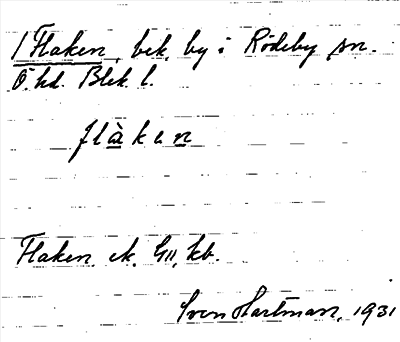 1 Flaken, bek. by i Rödeby sn.
Ö. hd. Blek. l.
flàken
Flaken ek. G11, kb.
Sven Hartman, 1931